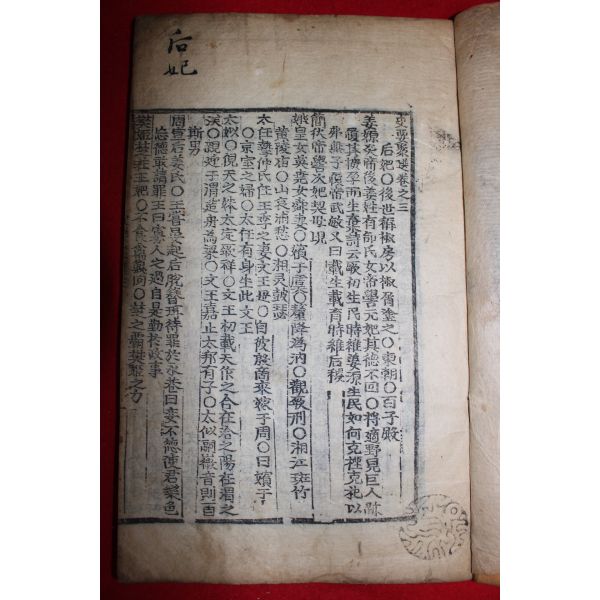 后妃
史要聚選卷之三
后妃〇後世稱椒房以椒屑塗之〇東朝〇百子殿
姜嫄炎帝後姜姓有邰氏女帝嚳元妃其德不回〇將適野見巨人跡
履其拇孕而生弃詩云厥初生民時維姜嫄生民如何克禋克祀以
弗無子履帝武敏又曰載生載育時維后稷
簡狄帝嚳次妃契母
娥皇女英堯女舜妻〇嬪于虞〇釐降溈汭〇觀厥刑〇湘江斑竹
黃陵廟〇山哀浦愁〇湘灵鼓瑟
太任摯仲氏任王季之妻文王母〇自彼殷商來嫁于周〇曰嬪于
京〇京室之婦〇太任有身生此文王
太姒〇俔天之妹太定厥祥〇文王初載天作之合在洽之陽在渭之
涘〇親迎于渭造舟為梁〇文王嘉止大邦有子〇太姒嗣徽音則百
斯男
周宣后姜氏〇王嘗晏起后脫簪珥待罪於永巷曰妾不德使君樂色
忘德敢請罪王曰寡人之過自是勤於政事
樊姬楚莊王妃〇不食禽獸肉〇楚之霸樊姬之力